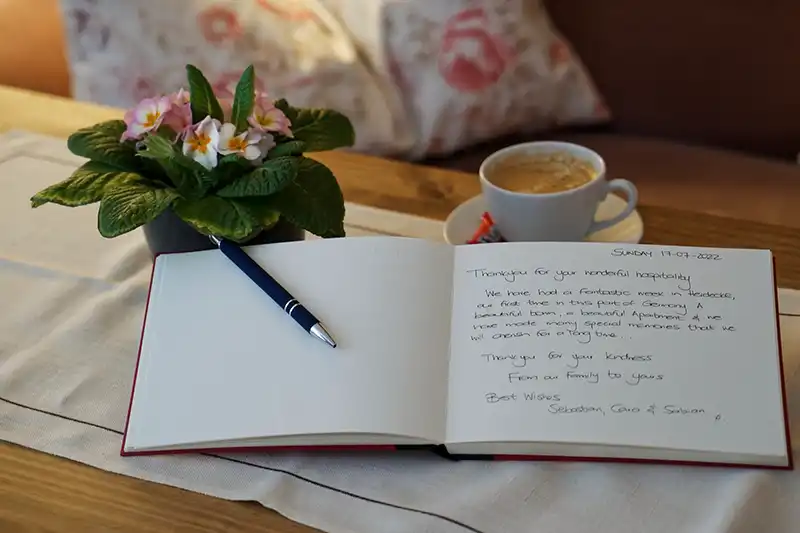 SUNDAY 17-07-2022
Thankyou for your wonderful hospitality
We have had a fantastic week in
our first time in this part of Germany. A
beautiful town, a beautiful Apartment & we
have made many special memories that we
will cherish for a long time...
Thankyou for your kindness
From our family to yours
Best Wishes
Sebastian, &